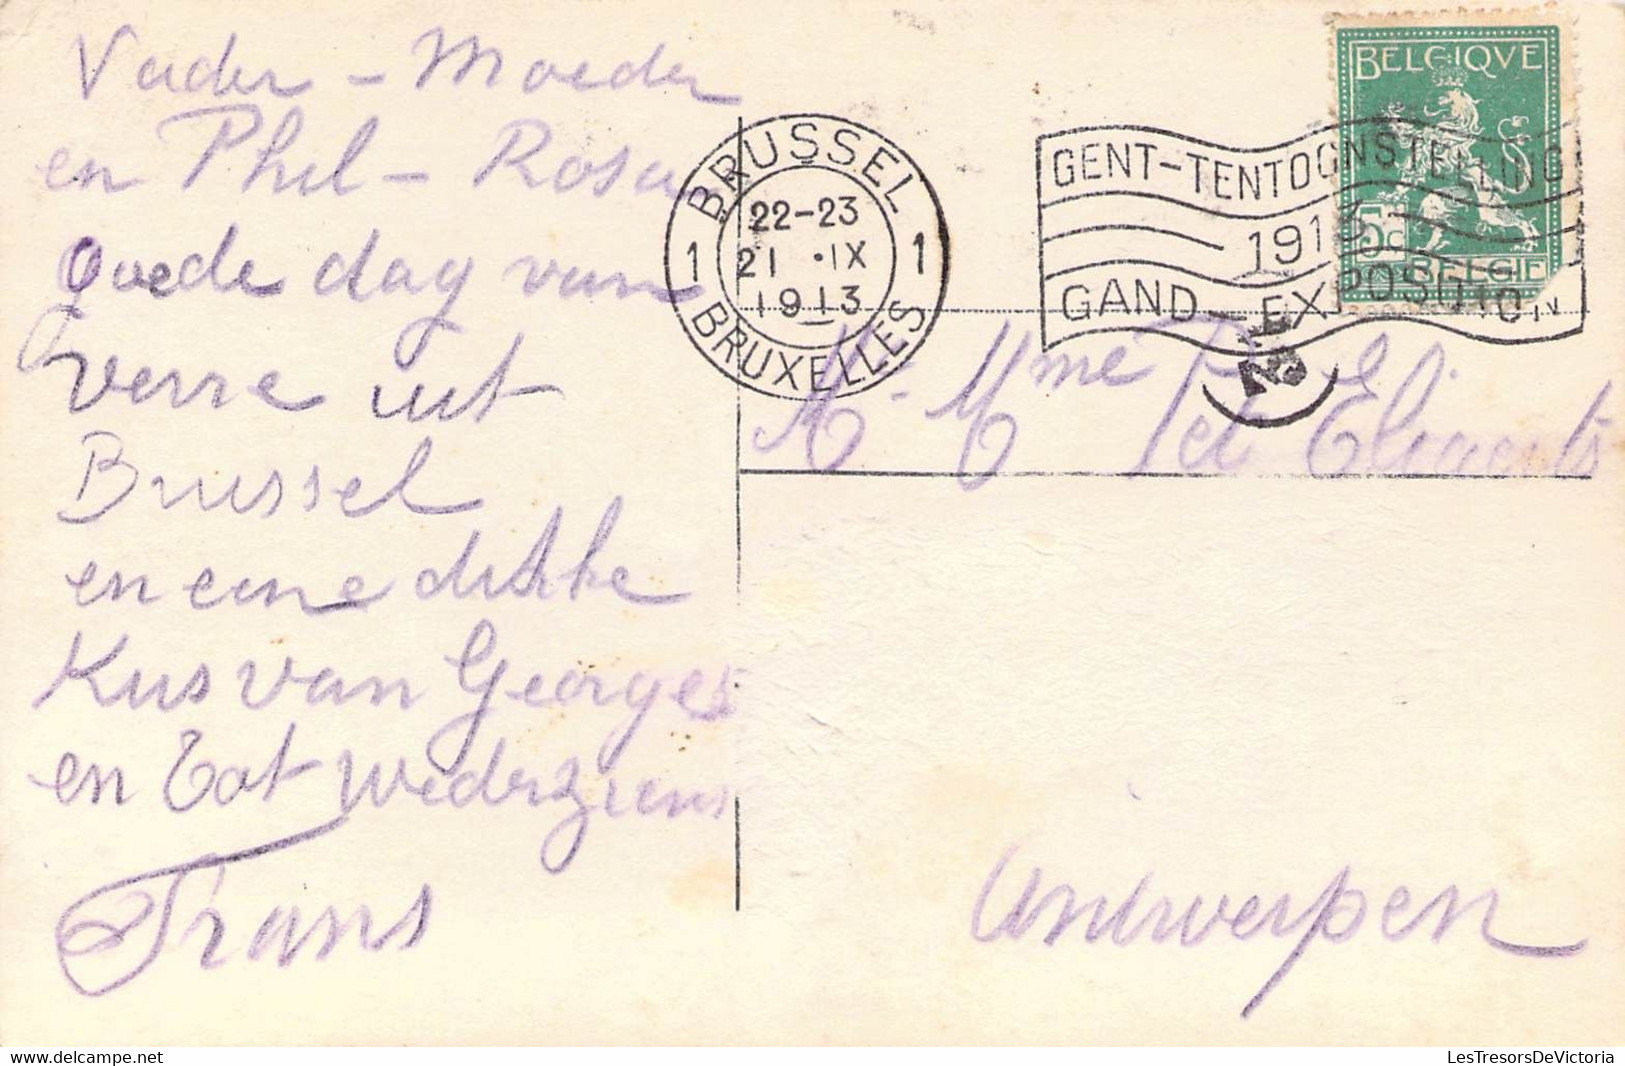 Vader - Moeder
en Phil - Rosa
goede dag van
verre uit
Brussel
en eene dikke
Kus van Georges
en Tot wederziens
Frans
BRUSSEL
22-23
1 21 · IX 1
1913
BRUXELLES
GENT-TENTOONSTELLING
1913
GAND-EXPOSITION
BELGIQVE
5c
BELGIE
Mr Mme
Antwerpen
LesTresorsDeVictoria